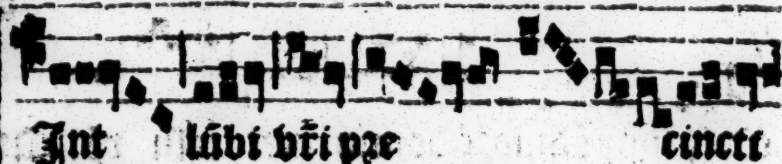 Jnt lūbi vr̄i pꝛe cinctt